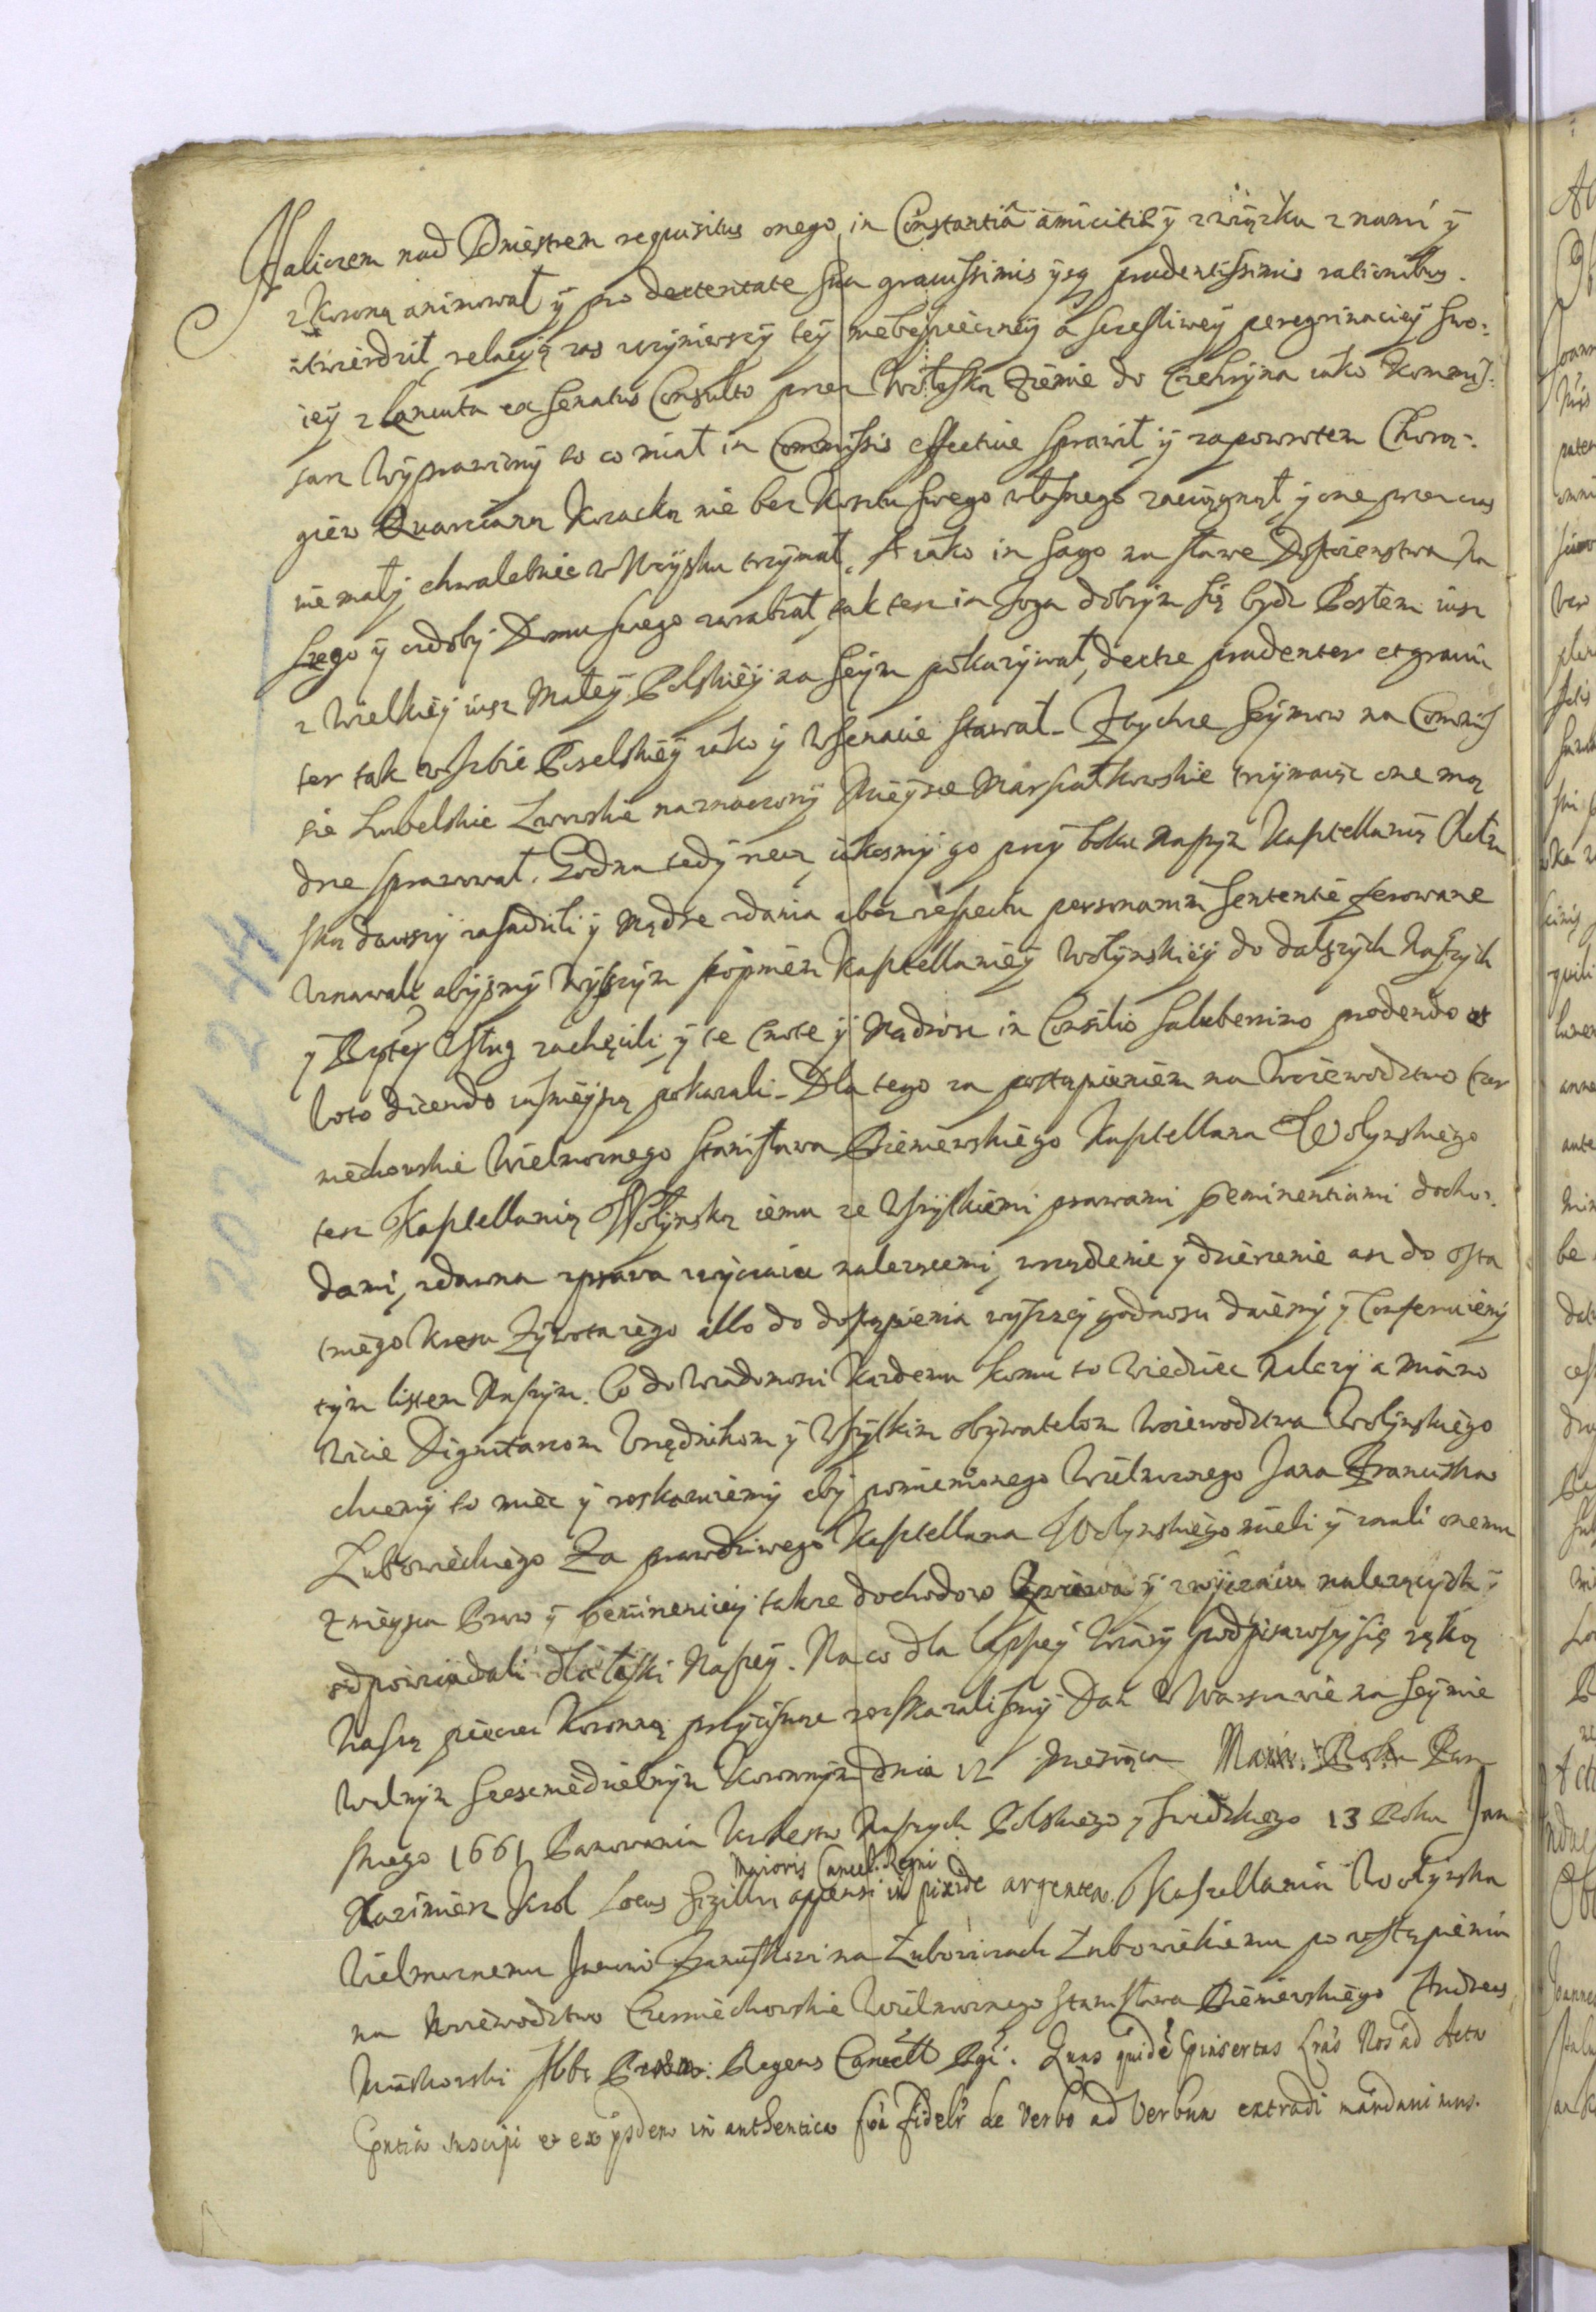 Haliczem nad Dniestrem requisitus onego in Constantia amicitiæ ÿ związku z nami ÿ
z Koroną animował ÿ pro dexteritate sua gravissimis ÿsq prudentissimis rationibus
utwierdził, relacÿą zas uczÿniwszÿ teÿ niebespiecznéÿ a sczesliweÿ peregrinacieÿ swo:
ieÿ z Lancuta ex Senatus Consulto przez Wołoską Ziemie do Czehrÿna iako Kommis:
sarz Wÿprawionÿ to co miał in Commissis effective sprawił ÿ zapowrotem Chorą:
giew Quarcianą Kozacką nie bez Kosztu swego własnego zaciągnął, ÿ one przez czas
nie małÿ chwalebnie w Woÿsku trzÿmał. A iako in sago na sławe Dostoienstwa Na
szego ÿ ozdobÿ Domu swego zarabiał, tak tesz in toga dobrÿm się bÿdz Posłem iusz
z Wielkieÿ iusz Małeÿ Polskieÿ na Seÿm pokazÿwał, docte prudenter et gravi
ter tak w Izbie Poselskieÿ iako ÿ w Senacie stawał. Zbÿchze Seÿmow na Commis
sie Lubelskie Lwowskie naznaczonÿ Mieÿsce Marszałkowskie trzÿmaiąc one mą
drze sprawował. Godna tedÿ rzecz, iakosmÿ go przÿ boku Naszÿm Kasztellaniÿ Chełm
ską dawszÿ zasadzili ÿ Mądre zdania abez respectu personarum Sententie ferowane
Uznawali abÿsmÿ wÿszszÿm stopniem Kasztellanieÿ Wołÿnskieÿ do dalszÿch Naszÿch
ÿ Rzptey Usług zachęcili ÿ te Cnote ÿ Mądrosc in Consilio saluberrimo prodendo et
Voto dicendo iasnieÿszą pokazali. Dla tego za postąpieniem na Woiewodztwo Czer
niechowskie Wielmoznego Stanisława Bieniewskiego Kasztellana Wołynskiego
tesz Kasztellanią Wołÿnską iemu ze Wszÿtkiemi prawami peminentiami docho:
dami, zdawna zprawa zwÿczaiu nalezącemi, wrządzenie ÿ dzierzenie asz do osta
tniego Kresu Zÿwota iego albo do dostąpienia wÿszszeÿ godnosci daiemÿ ÿ Conferuiemÿ
tÿm listem Naszÿm. Co do Wiadomosci Kazdemu komu to Wiedziec nalezÿ a miano
wicie Dignitarzom Urzędnikom ÿ Wszÿtkim obÿwatelom Woiewodztwa Wołÿnskiego
chcemÿ to miec ÿ roskazuiemÿ abÿ pomienionego Wielmoznego Jana Franciszka
Lubowieckiego Za prawdziwego Kasztellana Wołynskiego mieli ÿ znali onemu
Z mieÿsca Praw ÿ peminencieÿ takze dochodow zprawa ÿ zwÿczaiu nalezącÿch ÿ
odpowiadali dla łaski Naszeÿ. Na co dla lepszeÿ Wiarÿ podpisawszÿ się ręką
Naszą pieczec Koronną prziycisnąc roskazalismÿ Dan w Warszawie na Seÿmie
Walnÿm szescniedzielnÿm Koronnÿm dnia 12 Miesiąca Roku Pan
skiego 1661 Panowania Krolestw Naszych Polskiego ÿ Swedzkiego 13 Roku Jan
Kazimierz Krol Locus Sigilli Maioris Cancel. Regni appensi in pixide argentea. Kasztellania Wołynska
Wielmoznemu Janowi Franciszkowi na Lubowicach Lubowieckiemu po ustąpieniu
na Woiewodztwo Czerniechowskie Wielmoznego Stanisława Bieniewskiego Andreas
Miaskowski Abb: Regens Cancell Rgi. Quas quidē pinsertas Lrās Nos ad Acta
pntia suscipi et ex ÿsdem in authentica forā fideli de Verbo ad Verbum extradi mandavimus.